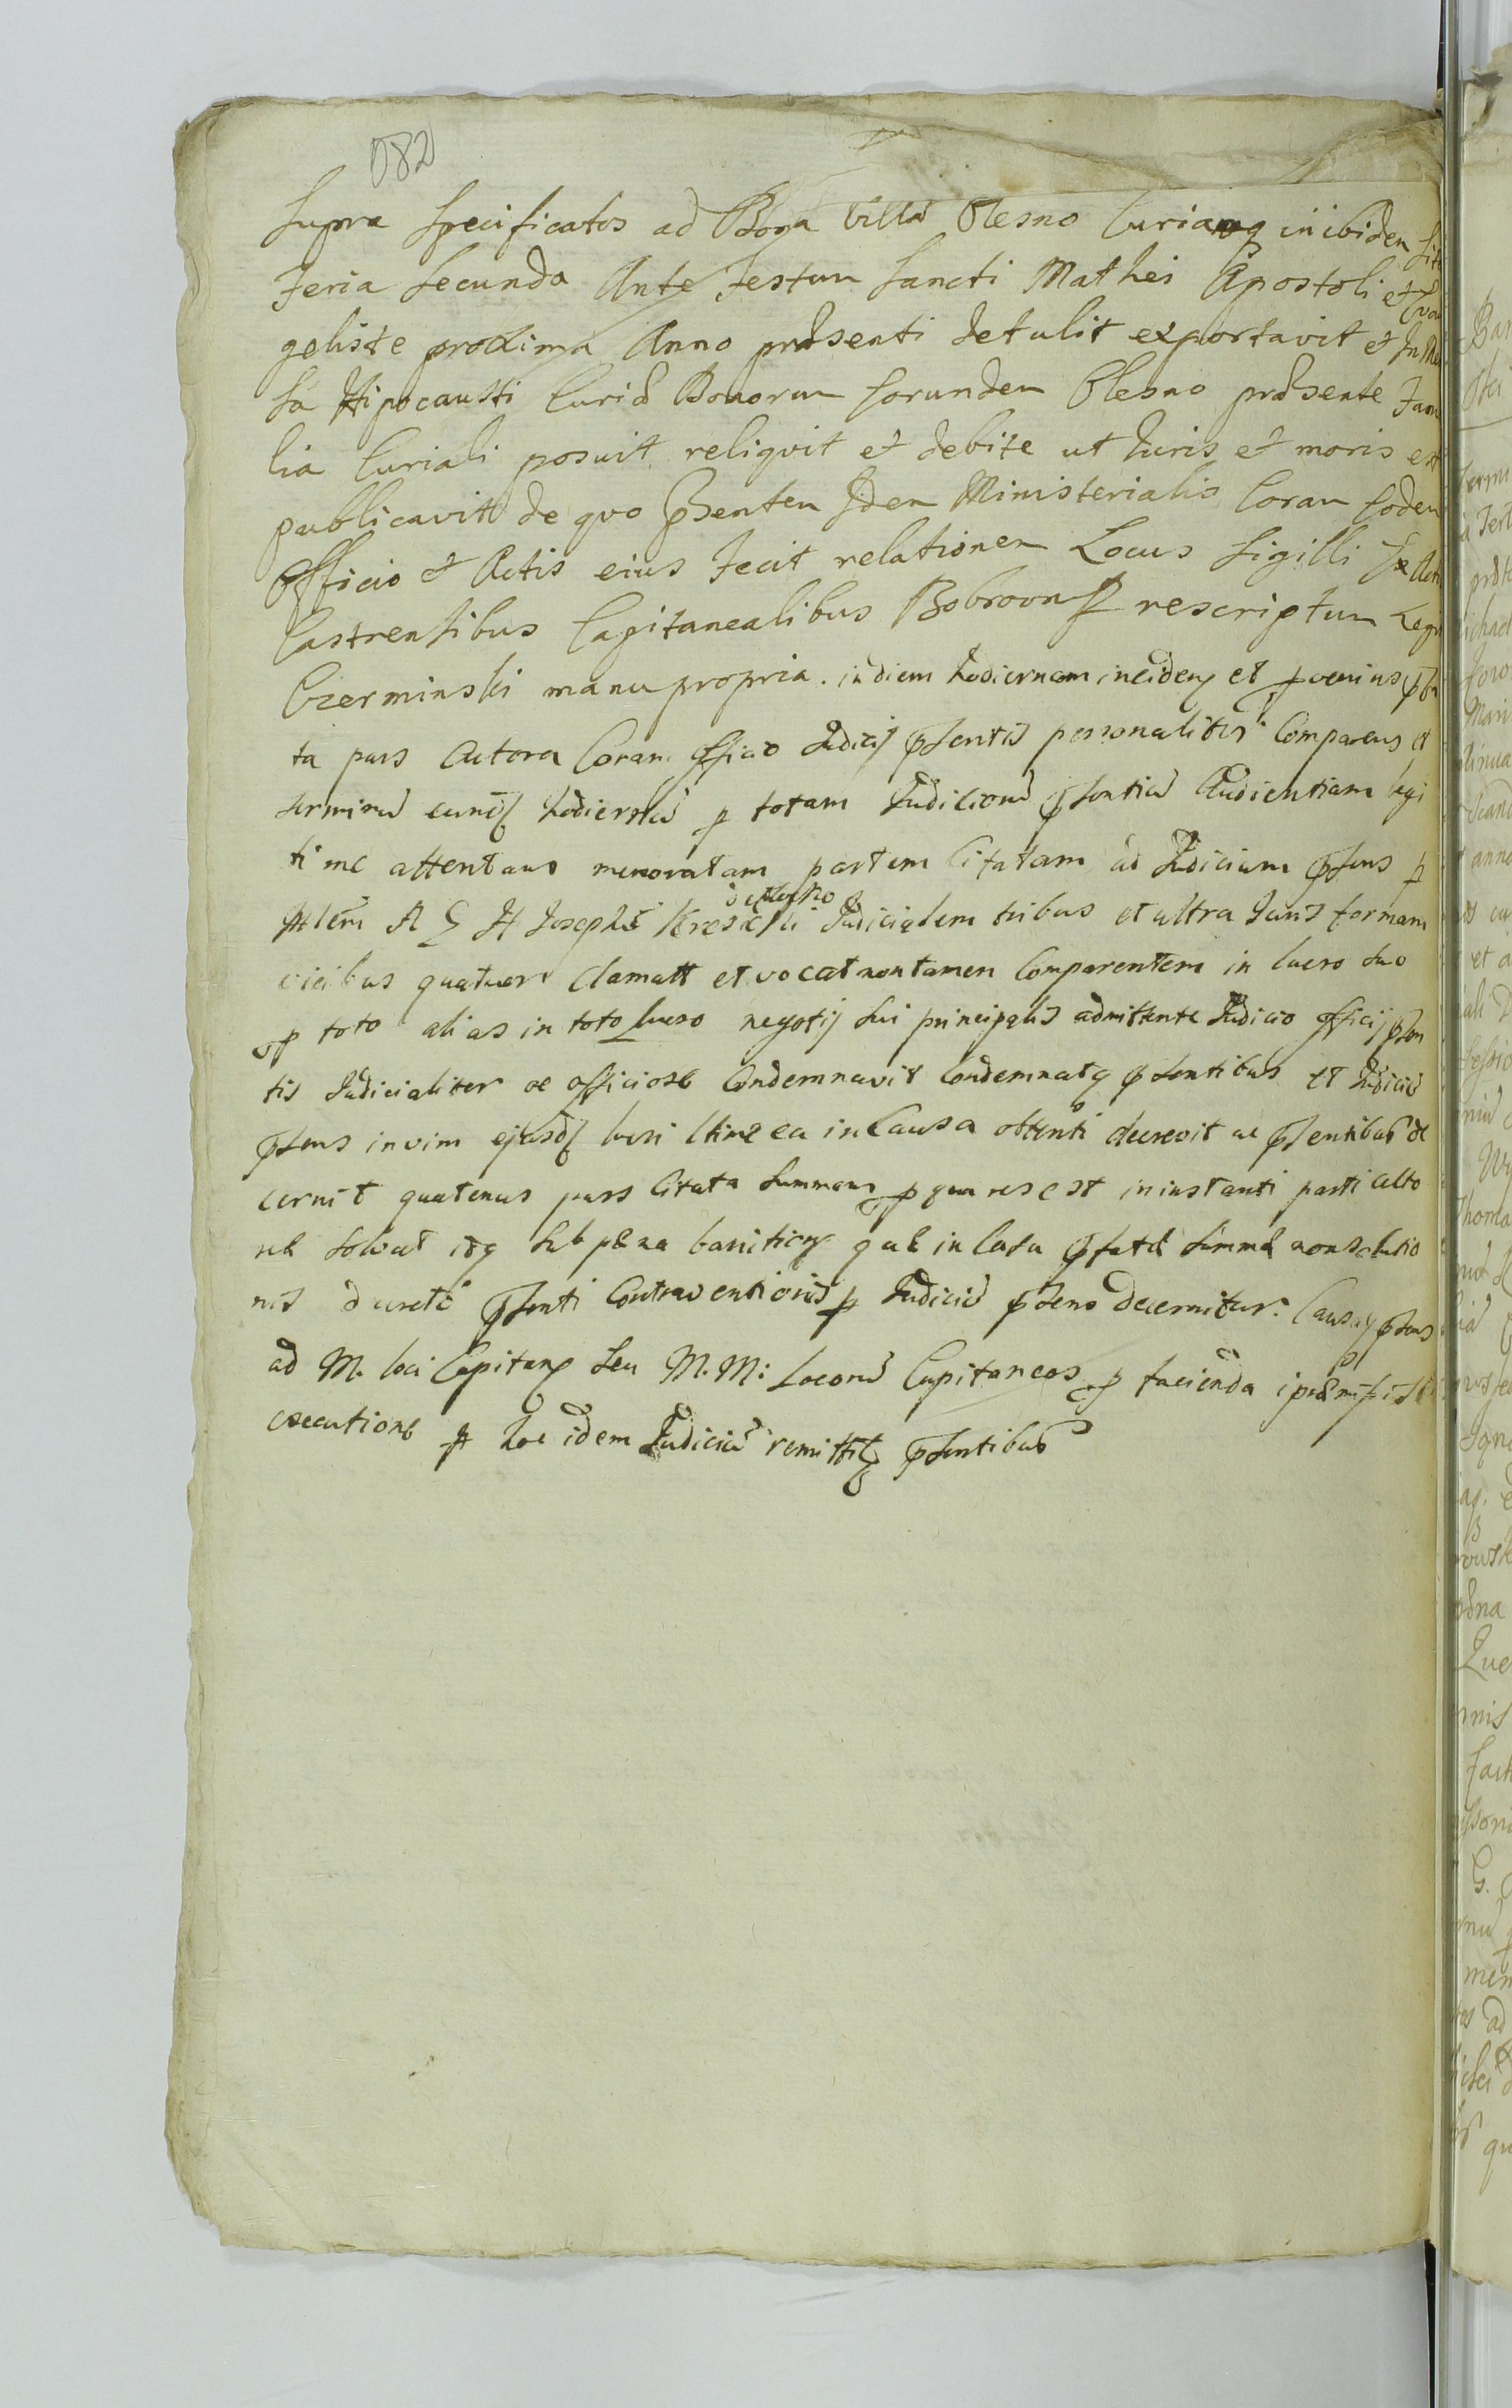 082
Supra Specificatos ad Bona Villã Olesno Curiamq inibidem
Feria Secunda Ante Festum Sancti Mathei Apostoli et Eva
geliste proxima Anno præsenti detulit exportavit et
sa Hipocausti Curiæ Bonorum eorundem Olesno præsente Fami
lia Curiali posuit reliqvit et debite ut Iuris et moris est
publicavit de qvo psentem Idem Ministerialis Coram eodem
Officio et Actis eius Fecit relationem Locus Sigilli Ex Actis
Castrensibus Capitanealibus Bobrovn rescriptum Legit
Czerminski manu propria . in diem hodiernam inciden et pveniens
ta pars Actora Coram Officio Judicij psentis personaliter Comparens et
terminũ eund hodiernũ p totam Judiciorũ psentiũ Audientiam legi
time attentans memoratam partem Citatam ad Judicium psens p
Mlem A S H Josephũ Judicialem tribus et ultra Juris formam
vicibus quatuor Clamatt et vocat non tamen Comparentem in lucro suo
p toto alias in toto lucro negotij sui principalis admittente Judicio Officij psen
tis Judicialiter ac officiose Condemnavit Condemnatq psentibus et Judiciũ
psens in vim ejusd lucri ea in Causa decrevit ac psentibus de
cernit quatenus pars Citata Summam p qua res est in instanti parti Acto
ræ Solvat idq Sub pæna banition quæ in Casu pfatæ Summæ non solutio
nis decreti psenti Contraventionis p Judiciũ psens decernitur. Causaq psens
ad M. loci Capitan Seu M. M: Locorũ Capitaneos p facienda
executione p hoc idem Judiciũ remittitq psentibus